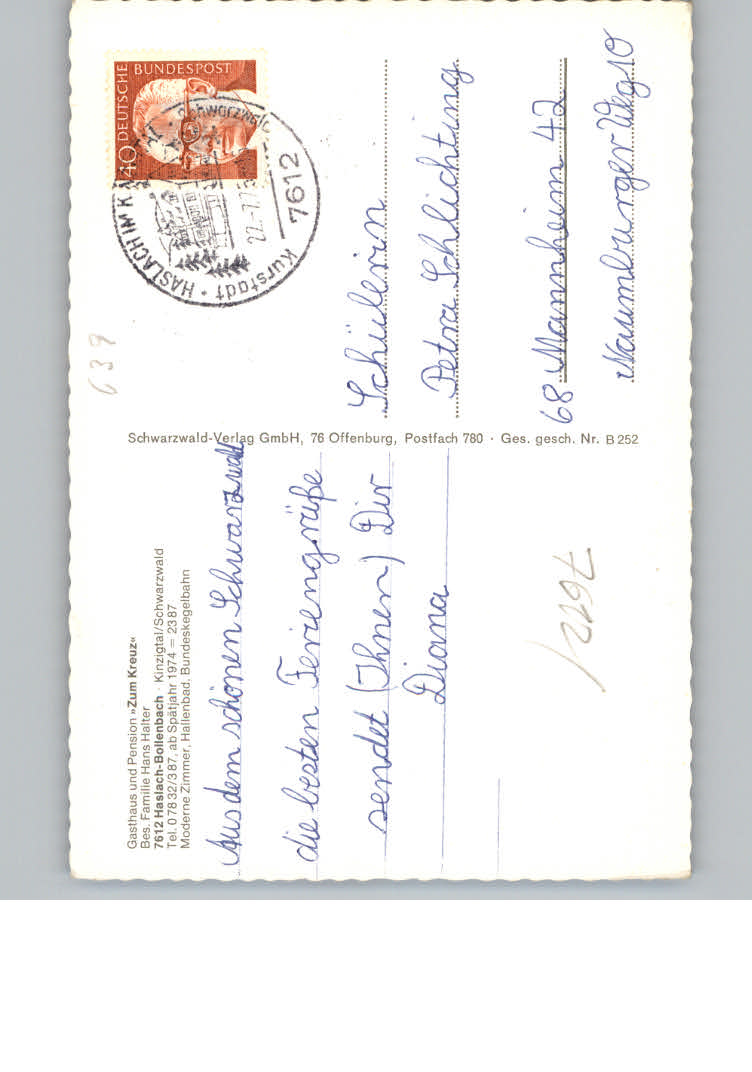 Gasthaus und Pension »Zum Kreuz«
Bes. Familie Hans Halter
7612 Haslach-Bollenbach · Kinzigtal/Schwarzwald
Tel. 0 78 32/3 87, ab Spätjahr 1974 = 23 87
Moderne Zimmer, Hallenbad, Bundeskegelbahn
Aus dem schönen Schwarzwald
die besten Feriengrüße
sendet (Ihnen) Dir
Diana
7612/
Schwarzwald-Verlag GmbH, 76 Offenburg, Postfach 780 · Ges. gesch. Nr. B 252
639
DEUTSCHE BUNDESPOST
40
HASLACH IM K
Schwarzwald
22.-7.7
7612
Kurstadt
Schülerin
Petra Schlichting
68 Mannheim 42
Naumburger Weg 10